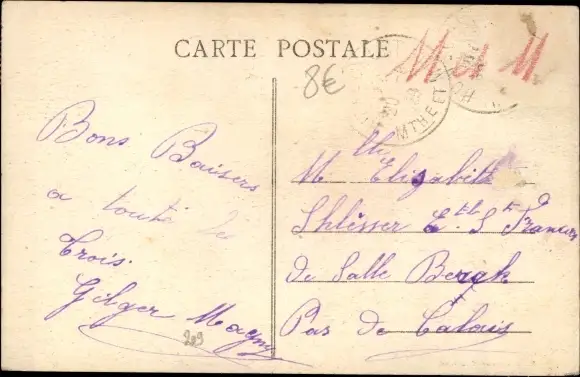 CARTE POSTALE
8€
M M
MTHE ET M
Bons Baisers
a toute le
trois.
Gilger Magny
Mlle Elizabeth
Shlisser Etbt St Francois
de Salle Berck
Pas de Calais
209